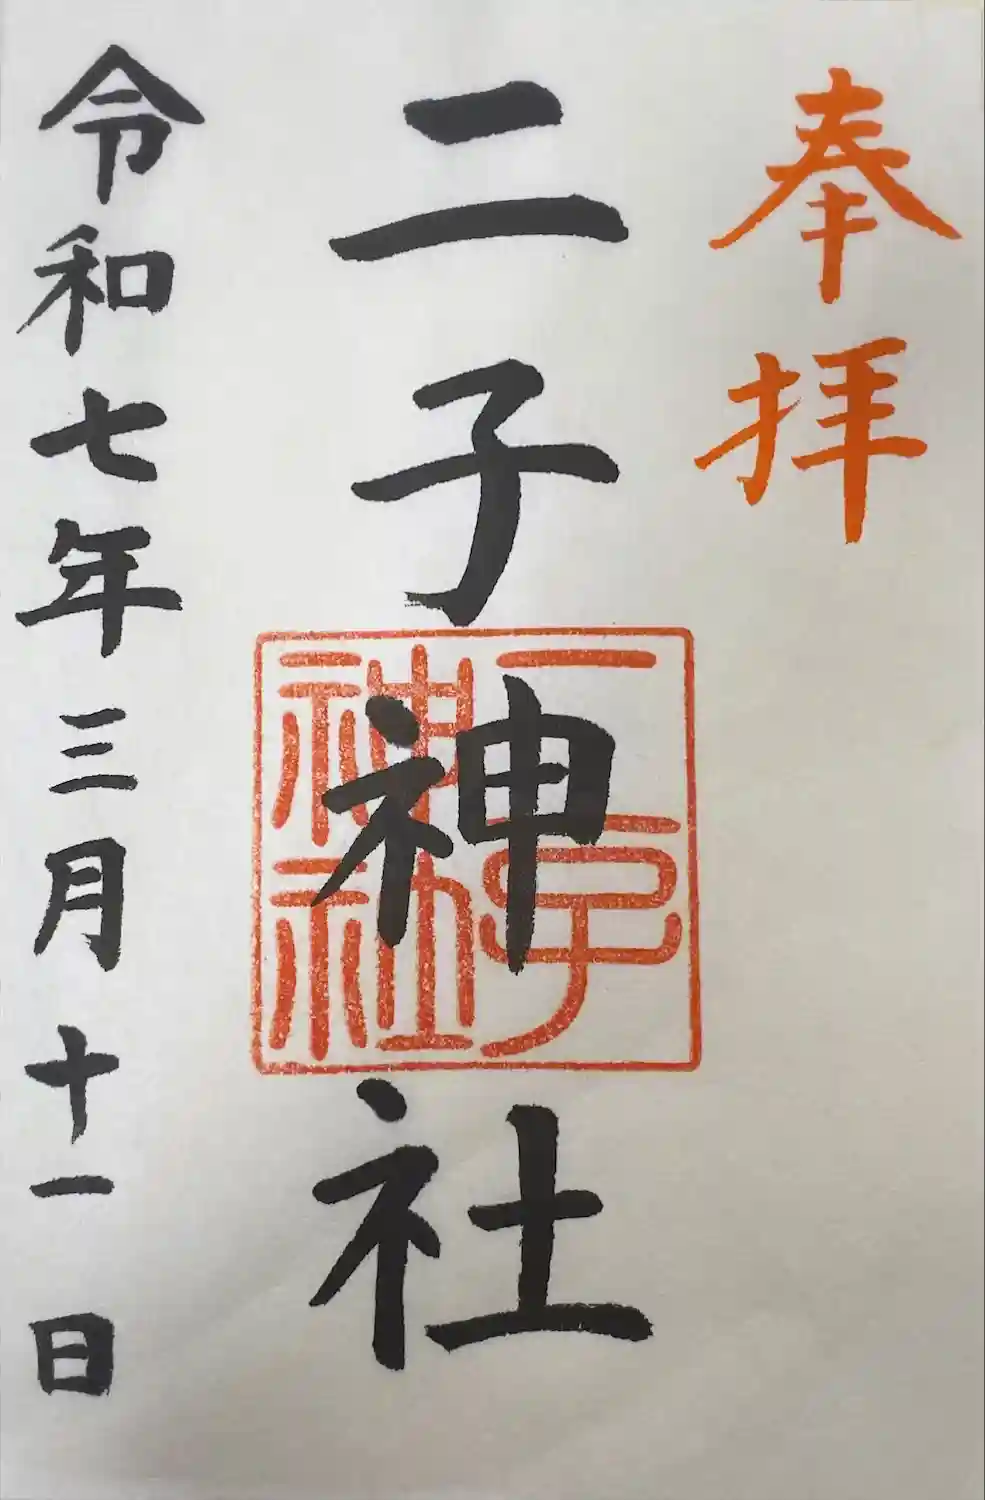 奉拝
二子神社
二子神社
令和七年三月十一日